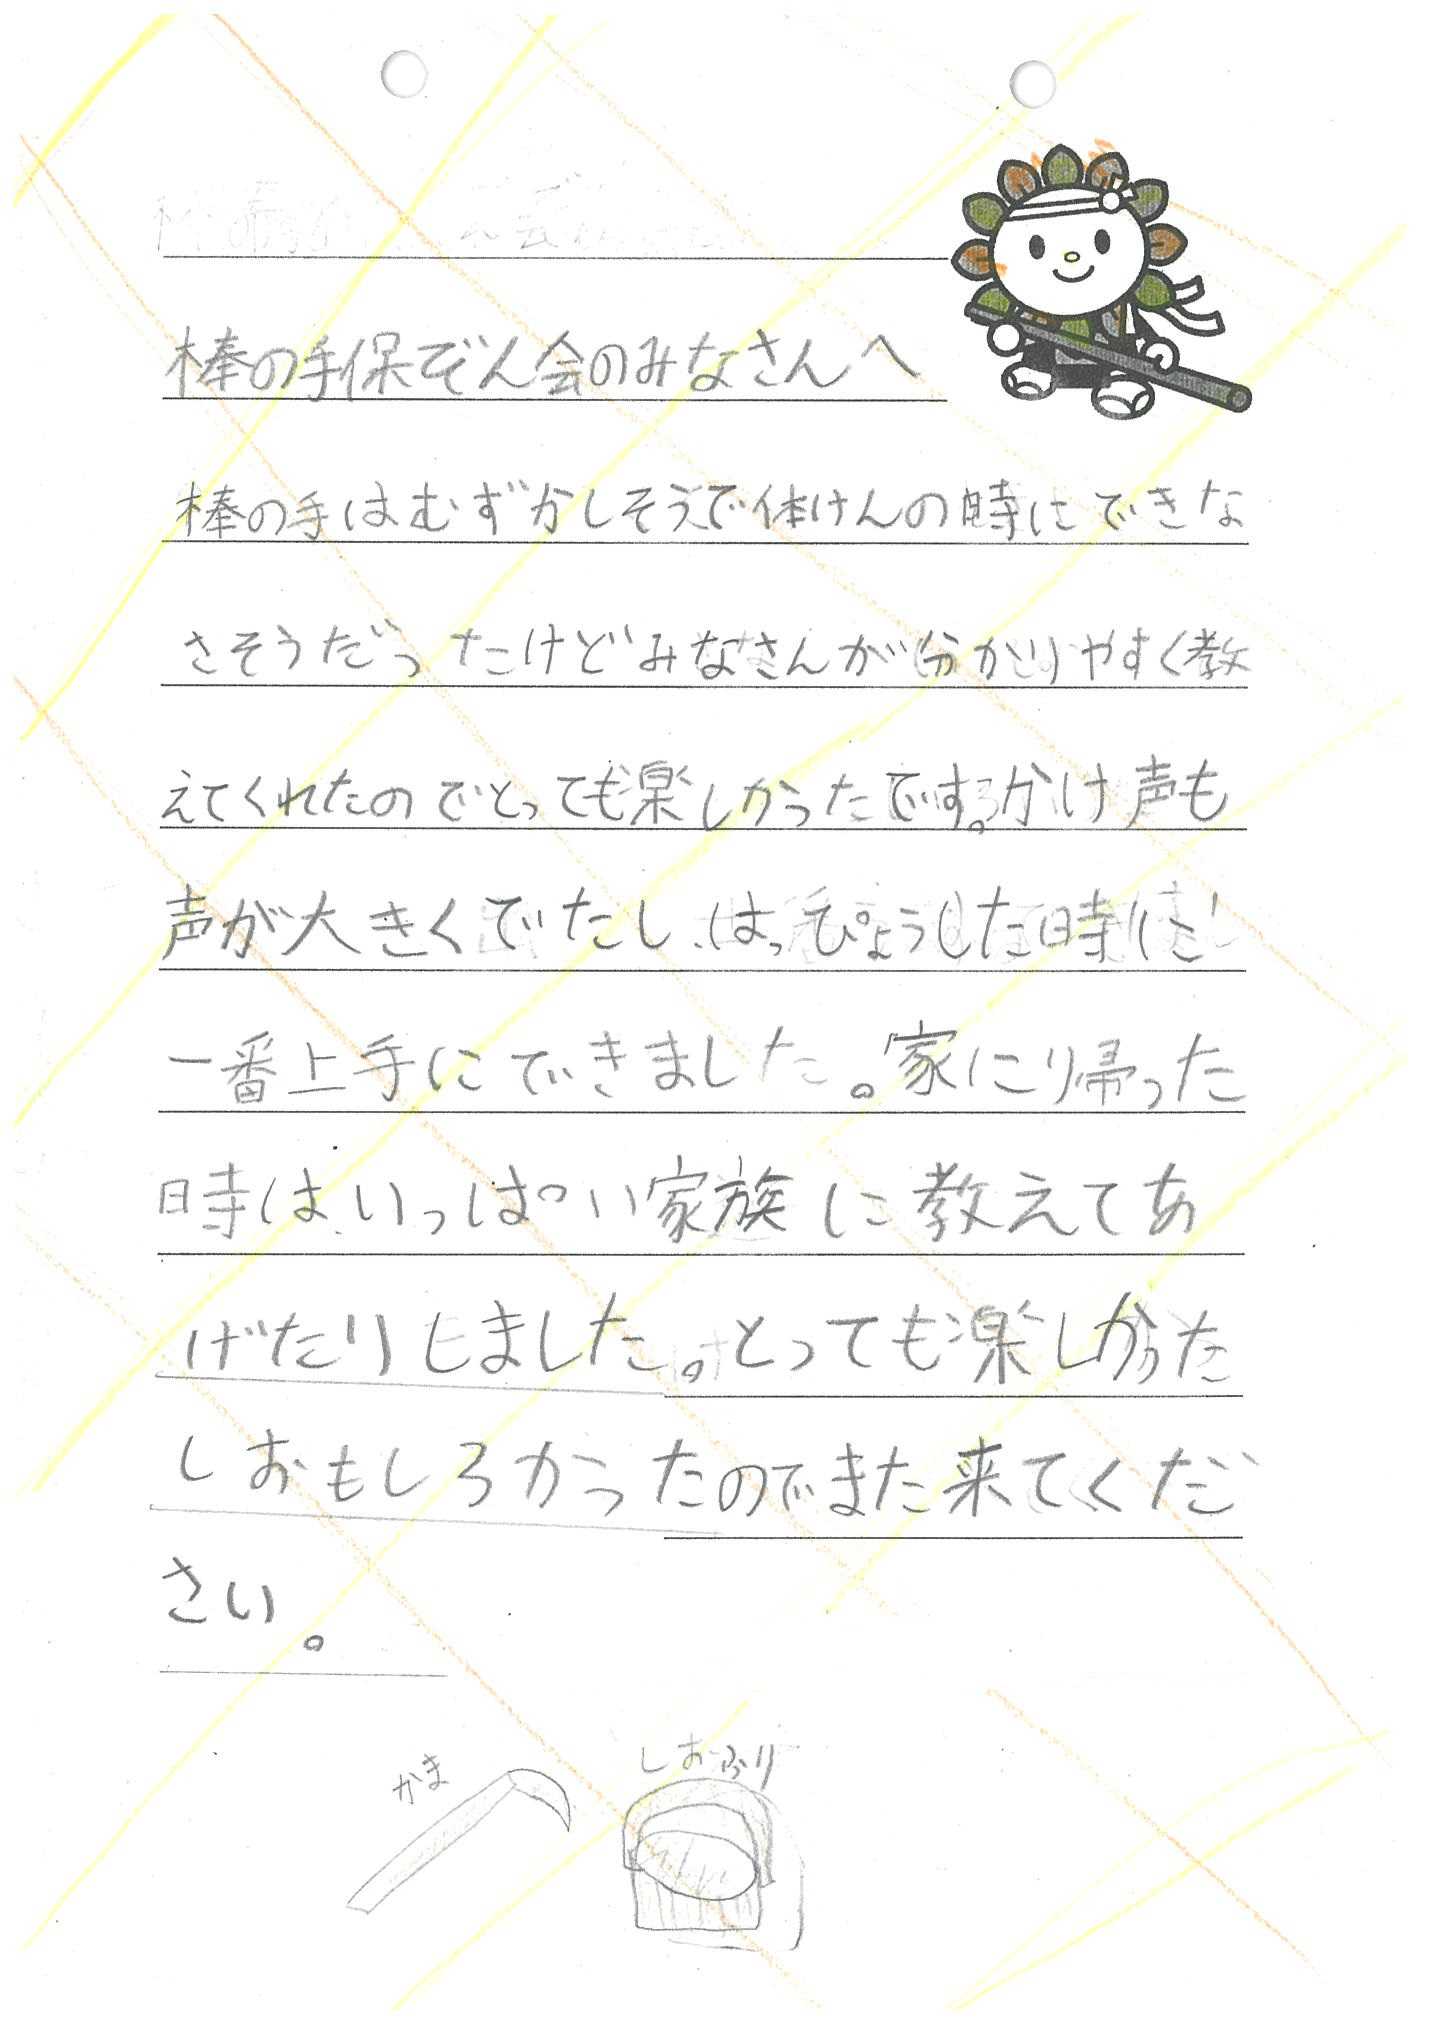 棒の手保ぞん会のみなさんへ
棒の手はむずかしそうで体けんの時にできな
さそうだったけどみなさんが分かりやすく教
えてくれたのでとっても楽しかったです。かけ声も
声が大きくでたし、はっぴょうした時に
一番上手にできました。家にり帰った
時は、いっぱい家族に教えてあ
げたりしました。とっても楽しかった
しおもしろかったのでまた来てくだ
さい。
かま
しおふり